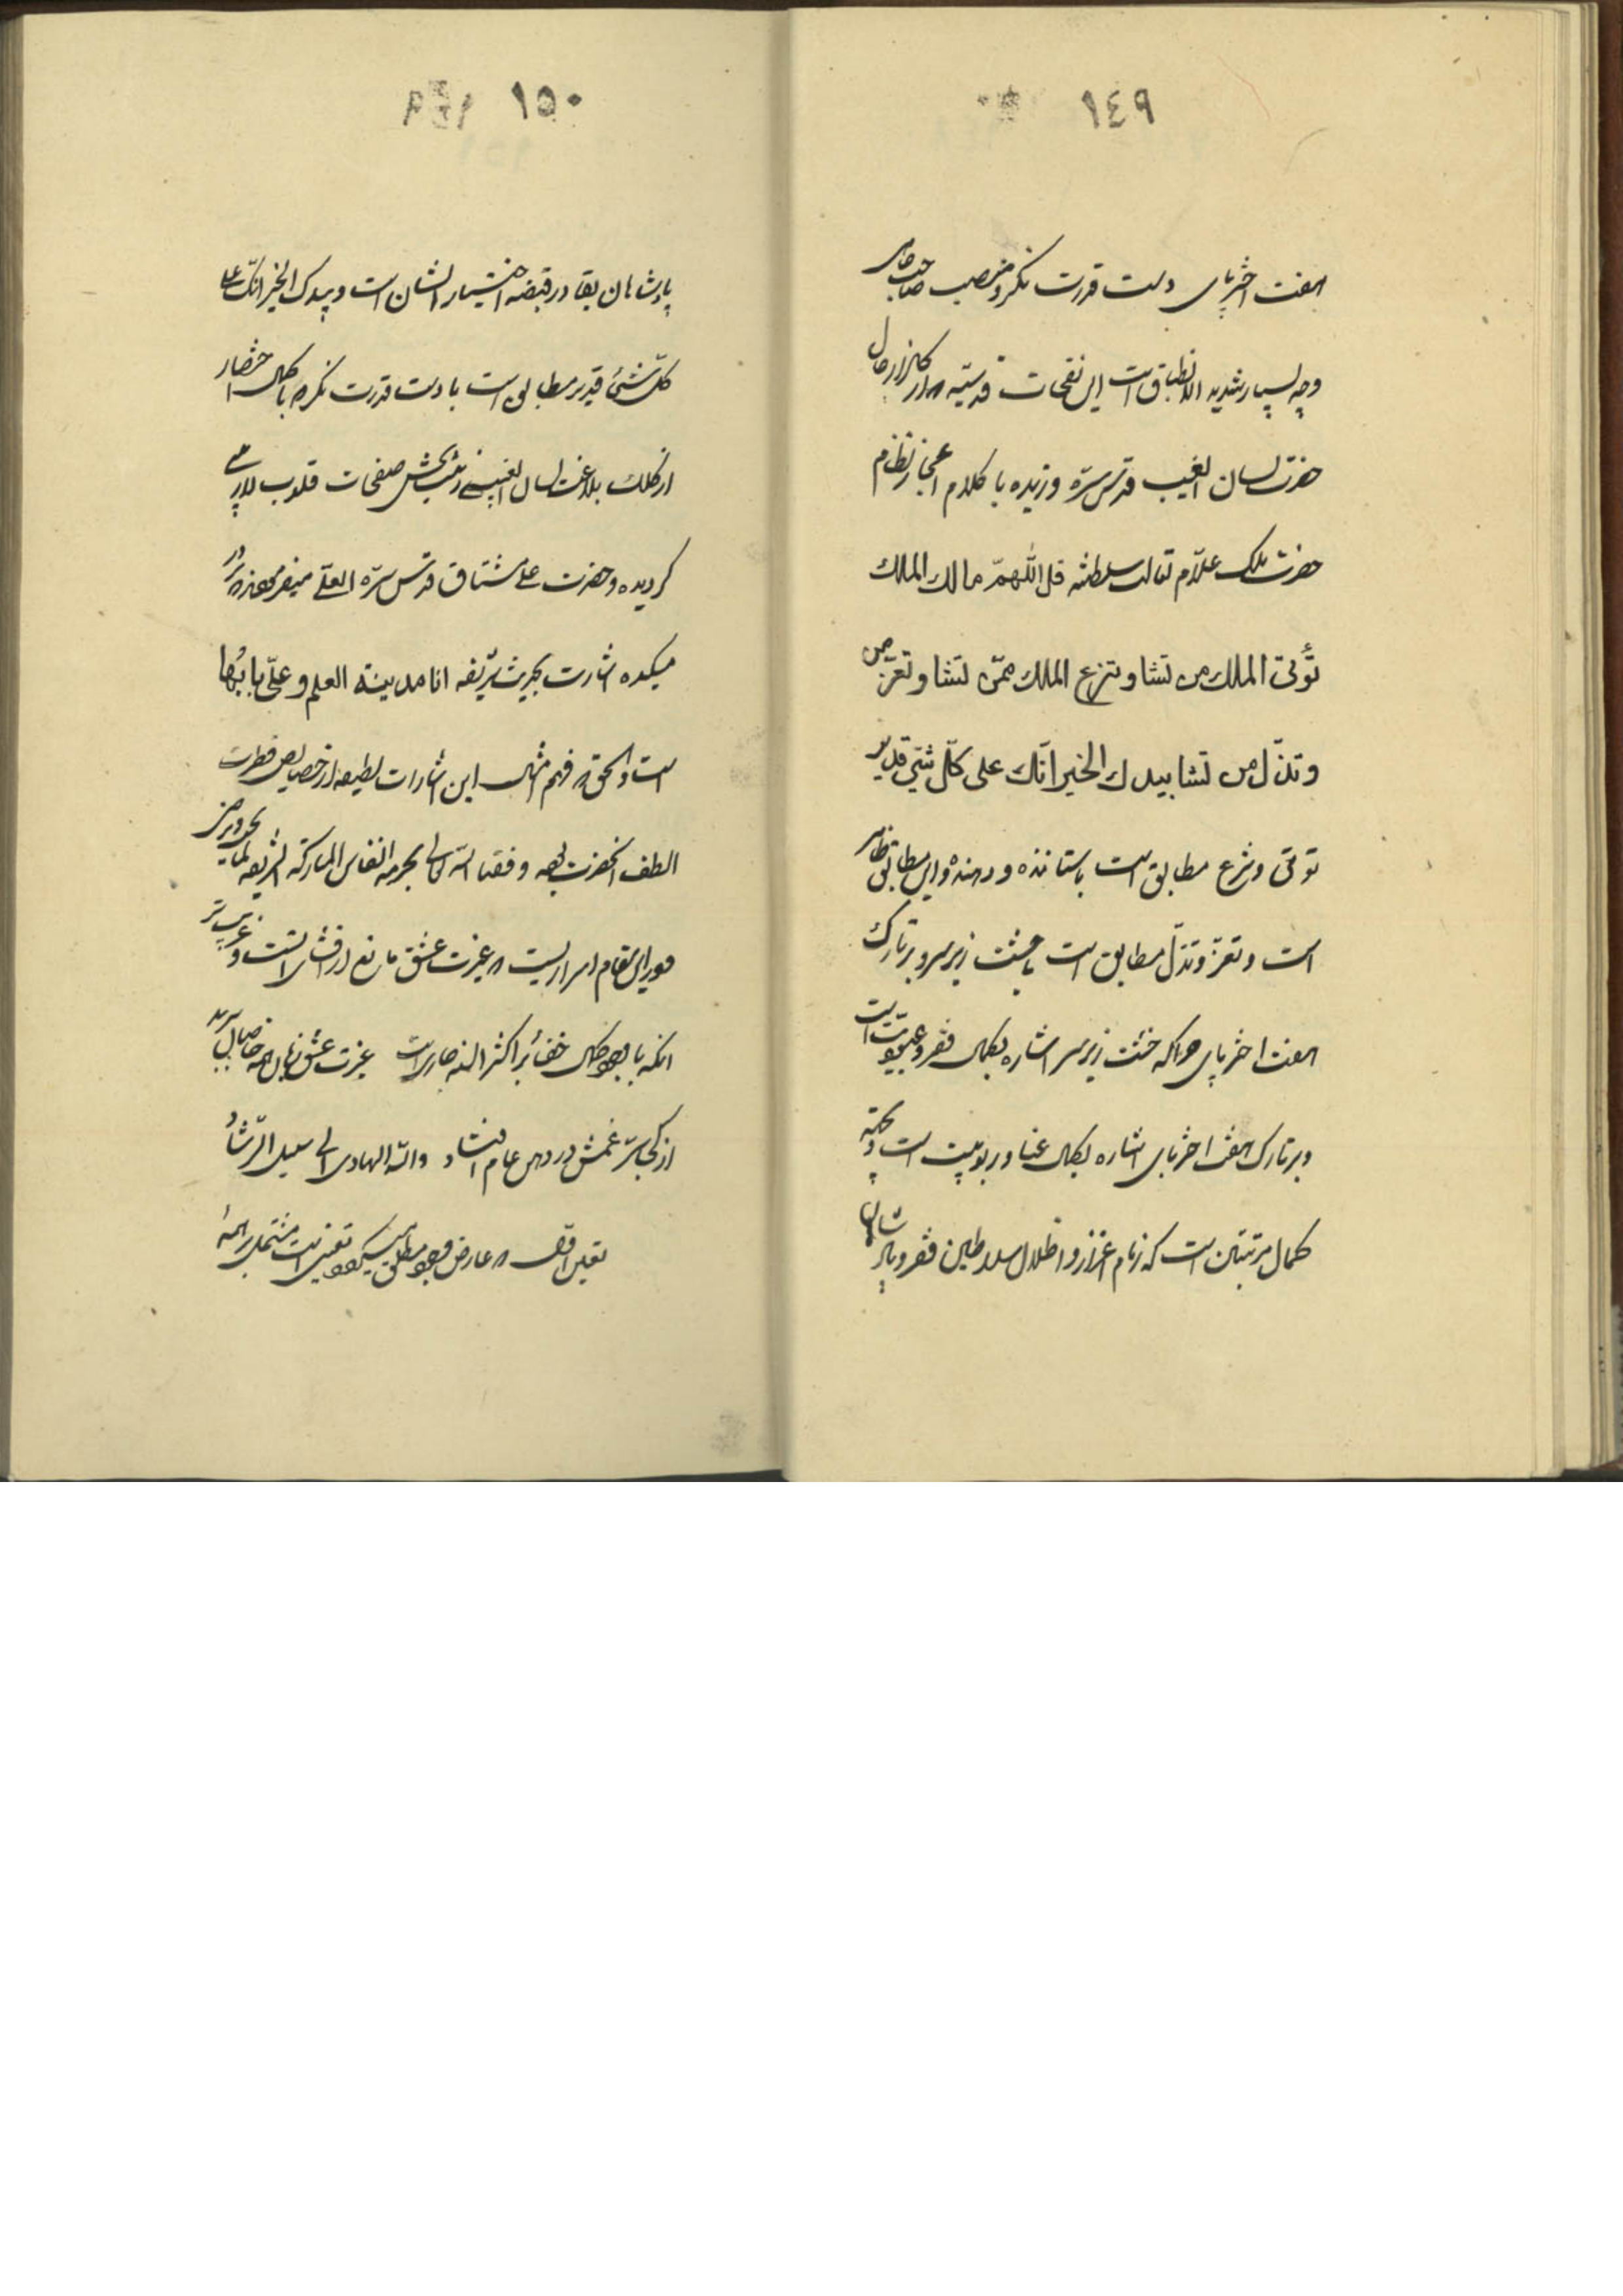 ١٤٩
هفت اختر پای دست قدرت نگر و منصب صاحب جاهی
وچه بسیار شدید الانطباق است این نفحات قدسیّه که از گلزار حال
حضرت لسان الغیب قدّس سرّه وزیده با کلام اعجاز نظام
حضرت ملک علّام تعالت سلطنته قل اللّهمّ مالك الملك
تؤتی الملك من تشا و تنزع الملك ممّن تشا و تعزّ من
و تذلّ من تشا بیدك الخیر انّك علی كلّ شیّ قدیر
توتی و تنزع مطابق است باستاننده و دهنده و این مطابقی ظاهر
است و تعزّ و تذلّ مطابق است با خشت زیر سر و بر تارک
هفت اختر پای چراکه خشت زیر سر اشاره بکمال فقر و عبودیّت است
و بر تارک هفت اختر پای اشاره بکمال غنا و ربوبیت است و نکته
کمال مرتبتین است که زمام اعزاز و اذلال سلاطین فقر و پادشاهان
١٥٠
پادشاهان بقا در قبضه اختیار ایشان است و بیدک الخیر انّک علی
کلّ شیئ قدیر مطابق است با دست قدرت نگر که با کمال اختصار
از کلک بلاغت لسان الغیبی زینت بخش صفحات قلوب لاریبی
گردیده و حضرت علی مشتاق قدّس سرّه العلّی میفرمودند که در
میکده اشارت بحدیث شریفه انا مدینة العلم و علیّ بابُها
است و الحق که فهم امثال این اشارات لطیفه از خصایص فطرت
الطف آنحضرت بود وفقنا اللّه تعالی بحرمه انفاس المبارکه الشریفه لما یحب و یرضی
و در این مقام اسراریست که غیرت عشق مانع از افشای انست و غریب تر
انکه با وجود کمال خفا بر اکثر السنه جاریست غیرت عشق زبان همه خاصان ببرید
از کجا سرّ غمش در دهن عام افتاد واللّه الهادی الی سبیل الرّشاد
تعین اوّل که عارض وجود مطلق میگردد تعینی است مشتمل بر همهٔ